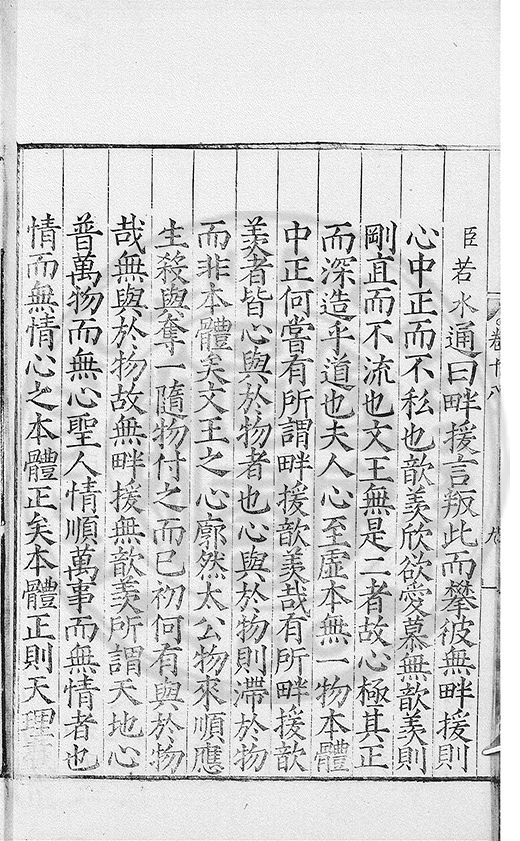 臣若水通曰畔援言叛此而攀彼無畔援則
心中正而不私也歆羨欣欲愛慕無歆羨則
剛直而不流也文王無是二者故心極其正
而深造乎道也夫人心至虛本無一物本體
中正何嘗有所謂畔援歆羨哉有所畔援歆
羨者皆心與於物者也心與於物則滯於物
而非本體矣文王之心廓然太公物來順應
生殺與奪一隨物付之而已初何有與於物
哉無與於物故無畔援無歆羨所謂天地心
普萬物而無心聖人情順萬事而無情者也
情而無情心之本體正矣本體正則天理
卷十八